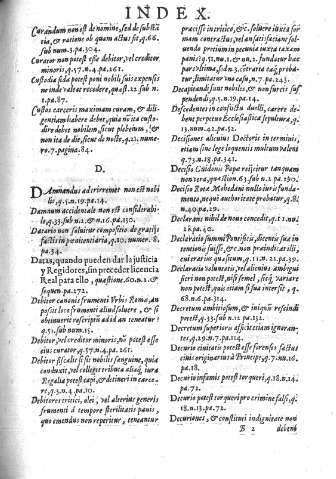 INDEX.
Curandum non est de nomine, sed de substã
cia, & ratione ob quam actus fit, q.66.
sub num.3.pa.304.
Curator non potest esse debitor, vel creditor
minoris, q.57.n.4.pa.261.
Custodia sida potest poni nobilis suis expensis
ne inde valeat recedere, quæst.22. sub n.
1.pa.87.
Custos carceris maximam curam, & dili-
gentiam habere debet, quia nõ ita custo-
dire debet nobilem, sicut plebeium, &
non ita de die, sicut de nocte, q.21. nume-
ro.7.pagina.84.
D.
DAmnandus ad triremes non est nobi-
lis, q.5.n.19.pa.14.
Damnum accidentale non est considerabi-
le, q.33.sub n.2. & n.16.pa.130.
Datario non solvitur compositio de gratijs
factis in pœnitentiaria, q.10. numer.8.
pa.34.
Datas, quando pueden dar la justicia
y Regidores, sin preceder licencia
Real para ello, quæstione.60.n.1. &
sequen.pa.272.
Debitor canonis frumenti Urbis Romæ, an
possit loco frumenti aliud solvere, & si
obtinuerit rescriptũ ad id an teneatur?
q.51.sub num.15.
Debitor, vel creditor minoris, nõ potest esse
eius curator, q.57.n.4.pa.261.
Debitor fiscalis si sit nobilis sanguine, quia
conduxit, vel collegit tributa aliaq; iura
Regalia potest capi, & detineri in carce-
re, q.3.n.4.pa.10.
Debitores tritici, olei, vel alterius generis
frumenti à tempore sterilitatis panis,
quo emendus non reperitur, teneantur
præcise in tritico, &c. solvere iuxta for-
mam contractus, vel an satisfaciant sol-
vendo pretium in pecunia iuxta taxam
panis? q.51.nu.1. & nu.2. fundatur hæc
pars ultima, sed n.3. cõtraria cæq; proba-
tur, limitatur uno casu, n.7.pa.243.
Decapitandi sunt nobiles, & non sunt sus-
pendendi, q.5.n.19.pa.14.
Decedentes in conflictu duelli, carere de-
bent perpetuo Ecclesiastica sepultura, q.
13.num.42.pa.52.
Decissiones alicuius Doctoris in termini-
etiam sine lege loquentis multum valent
q.73.n.18.pa.341.
Decisio Guidonis Papæ reijcitur tanquam
non vera, quæstion.63.sub n.2.pa.290.
Decisio Rotæ Mohedani nullo iuris funda-
mento, neque authoritate probatur, q.8.
n.40.pa.29.
Declarans nihil de novo concedit, q.1.nu.
28.pa.40.
Declaratio summi Pontificis, dicentis sua in-
tentionis fuisse, & c. non præiudicat illi,
cui erat ius quæsitum, q.11.n.21.pa.39.
Declaratio voluntatis, vel alicuius ambigui
fieri non potest, nisi semel, ideoq; variæ-
non potest, quis etiam si sua intersit, q.
68.n.6.pa.314.
Decretum ambitiosum, & iniquũ rescindi
potest, q.33.sub n.21.pa.132.
Decretum superioris afficit etiam ignoran-
tes, q.29.n.7.pa.114.
Decurio civitatis potest esse forensis factus
civis originarius à Principe, q.7.nu.16.
pa.18.
Decurio infamis potest torqueri, q.18.n.14.
pa.72.
Decurio potest torqueri pro crimine falsi, q.
18.n.13.pa.72.
Decuriones, & constituti indignitate non
B 2 debent